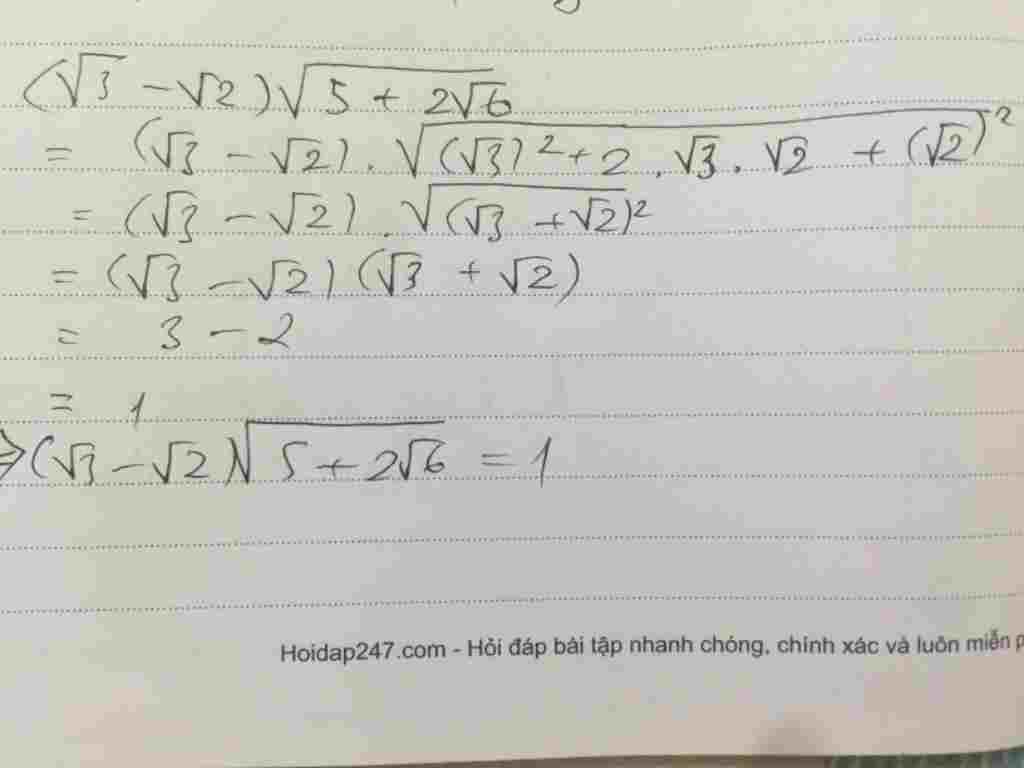 (√3 − √2)√5 + 2√6
= (√3 − √2) . √(√3)² + 2 . √3 . √2 + (√2)²
= (√3 − √2) . √(√3 + √2)²
= (√3 − √2) (√3 + √2)
= 3 − 2
= 1
⇒ (√3 − √2)√5 + 2√6 = 1
Hoidap247.com - Hỏi đáp bài tập nhanh chóng, chính xác và luôn miễn